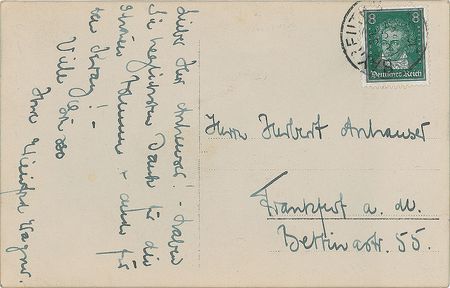 Lieber Herr Anhauser! – Haben
Sie herzlichsten Dank für die
schönen Blumen + auch für
den
Viele Grüsse
Ihre Winifred Wagner.
8 8
Deutsches Reich
Herrn Herbert Anhauser
Frankfurt a. M.
Bettinastr. 55.